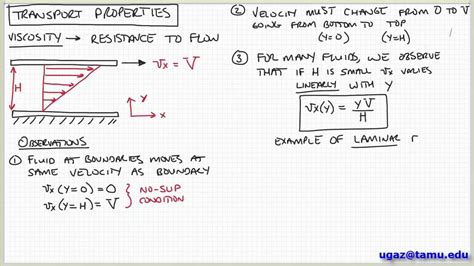 TRANSPORT PROPERTIES
VISCOSITY → RESISTANCE TO FLOW
vx = V
H
y
x
OBSERVATIONS
① FLUID AT BOUNDARIES MOVES AT
SAME VELOCITY AS BOUNDARY
vx (y=0) = 0
vx (y=H) = V
NO-SLIP
CONDITION
② VELOCITY MUST CHANGE FROM 0 TO V
GOING FROM BOTTOM TO TOP
(y=0) (y=H)
③ FOR MANY FLUIDS, WE OBSERVE
THAT IF H IS SMALL vx VARIES
LINEARLY WITH y
vx(y) = yV/H
EXAMPLE OF LAMINAR
ugaz@tamu.edu